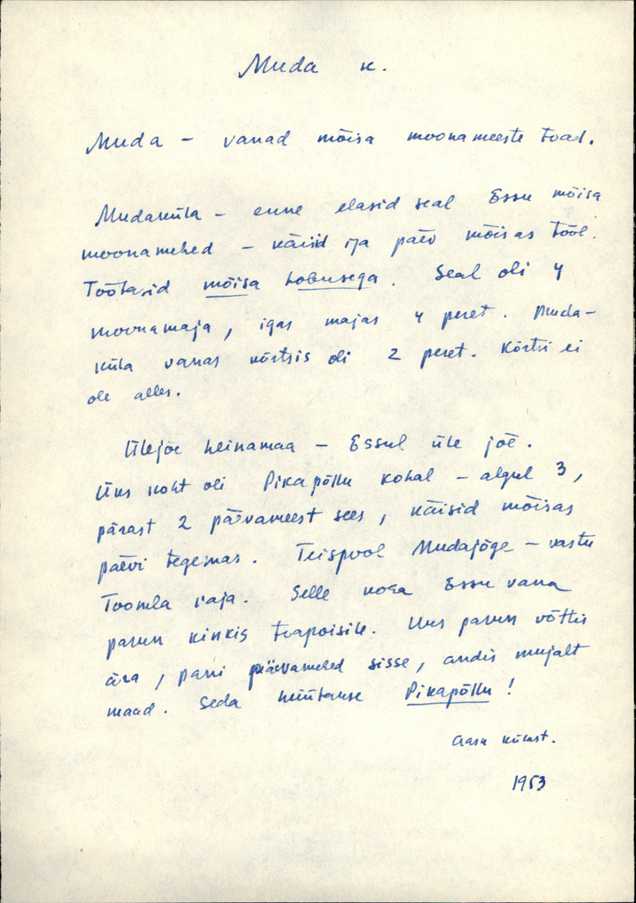 Muda k.
Muda – vanad mõisa moonameeste toad.
Mudaküla – enne elasid seal Essu mõisa
moonamehed – käisid iga päev mõisas tööl.
Töötasid mõisa hobusega. Seal oli 4
moonamaja, igas majas 4 peret. Muda-
küla vanas kõrtsis oli 2 peret. Kõrtsi ei
ole alles.
Ülejõe heinamaa – Essul üle jõe.
Üks koht oli Pikapõllu kohal – algul 3,
pärast 2 päevameest sees, käisid mõisas
päevi tegemas. Teispool Mudajõge – vastu
Toomla raja. Selle koha Essu vana
parun kinkis toapoisile. Uus parun võttis
ära, pani päevamehed sisse, andis mujalt
maad. Seda hüütakse Pikapõllu!
külast.
1953